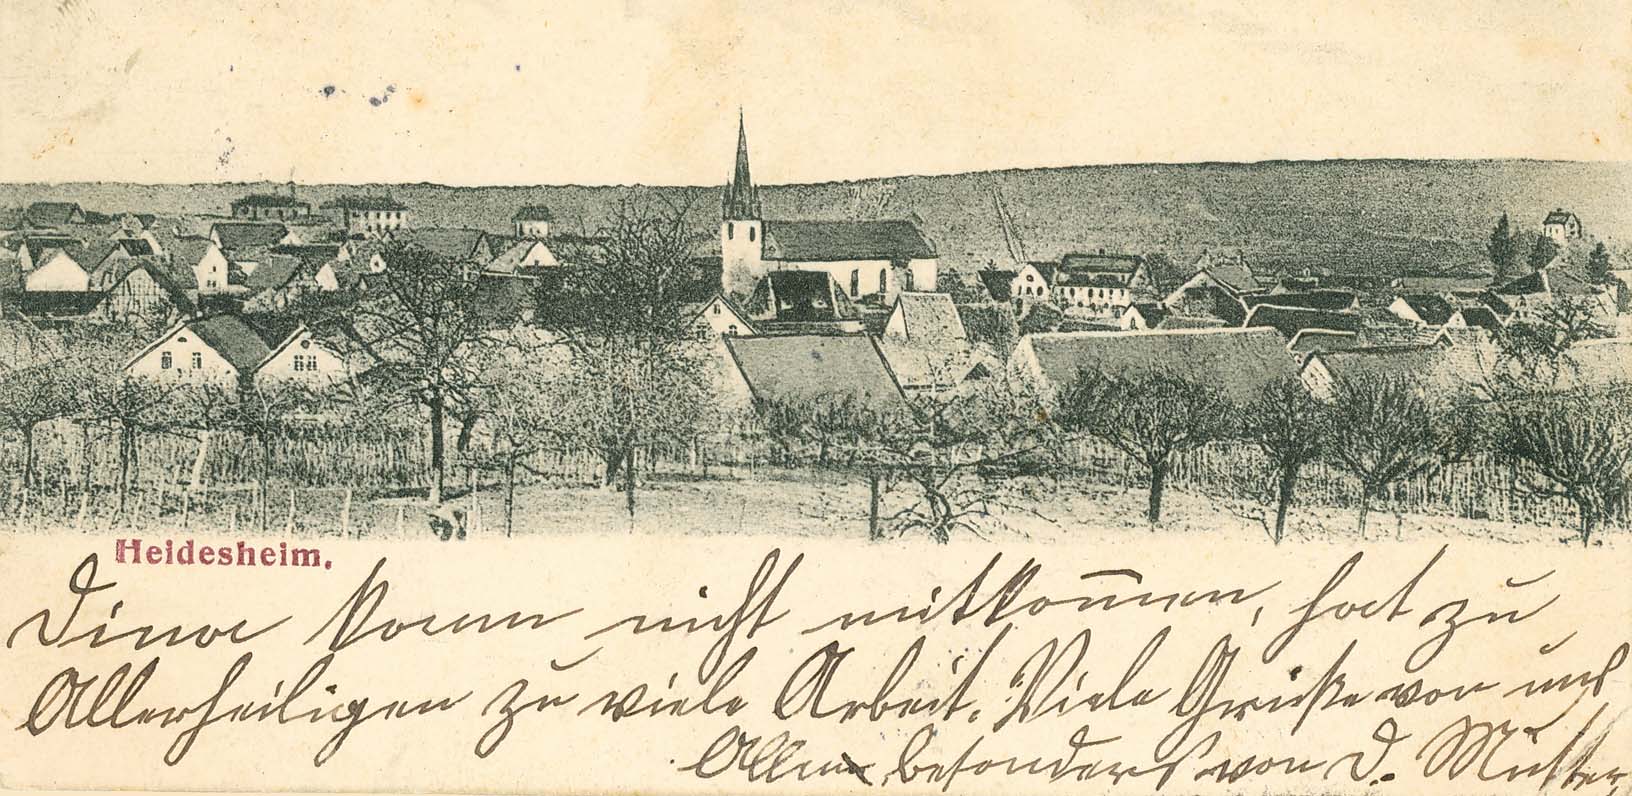 Heidesheim.
Dina kann nicht mitkom̅en, hat zu
Allerheiligen zu viele Arbeit. Viele Grüße von uns
Allen, besonders von d. Mutter,